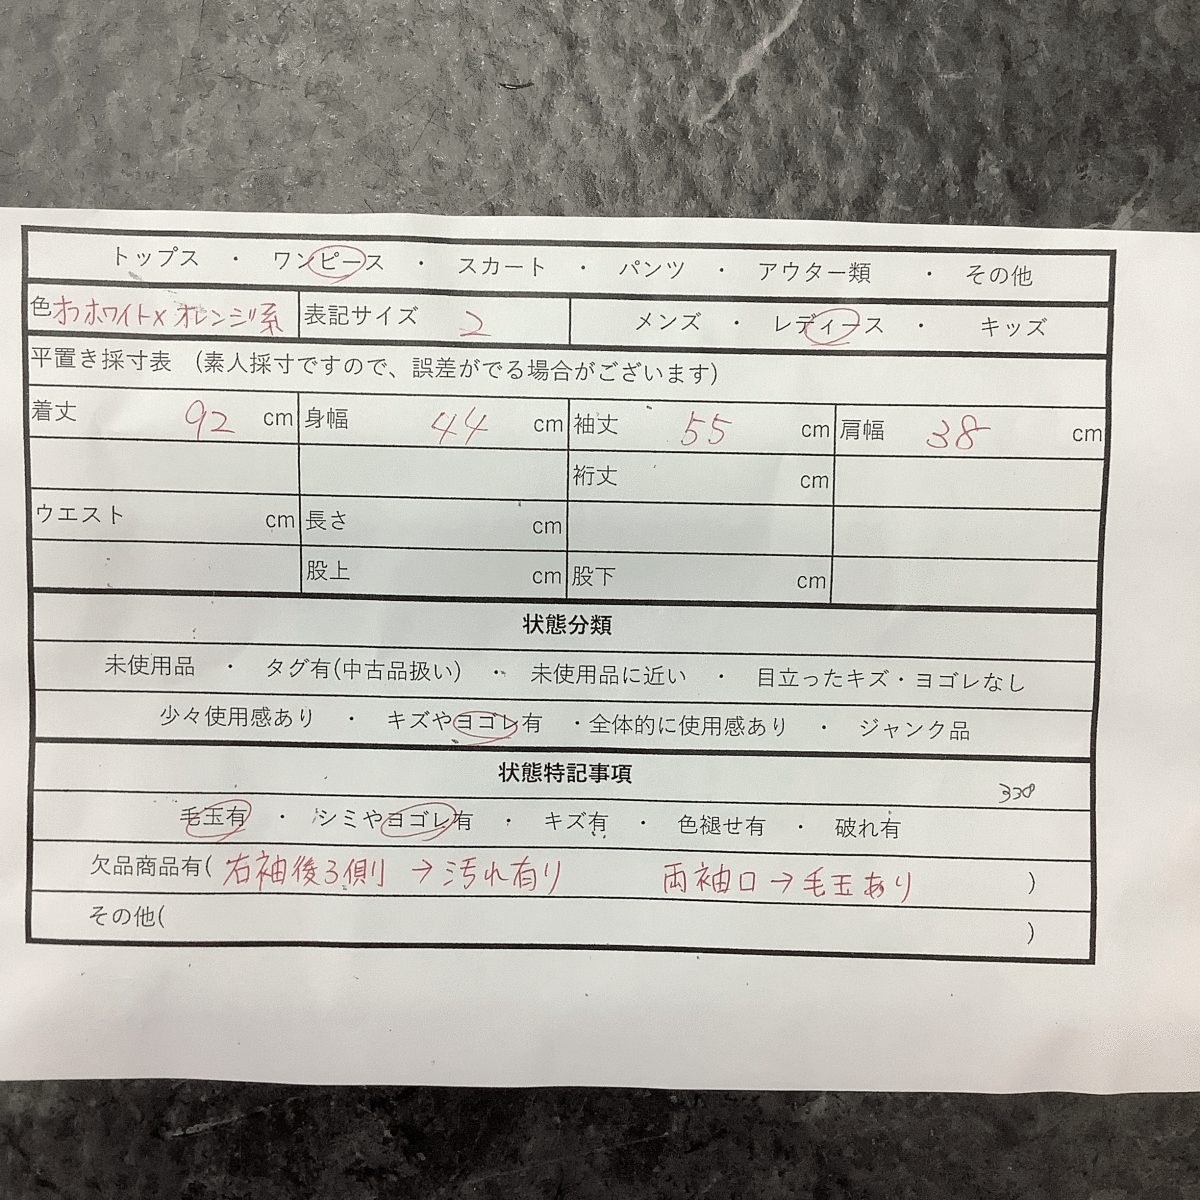 トップス ・ ワンピース ・ スカート ・ パンツ ・ アウター類 ・ その他
色 オフホワイト×オレンジ系 表記サイズ 2 メンズ ・ レディース ・ キッズ
平置き採寸表 (素人採寸ですので、誤差がでる場合がございます)
着丈 92 cm 身幅 44 cm 袖丈 55 cm 肩幅 38 cm
裄丈 cm
ウエスト cm 長さ cm
股上 cm 股下 cm
状態分類
未使用品 ・ タグ有(中古品扱い) ・ 未使用品に近い ・ 目立ったキズ・ヨゴレなし
少々使用感あり ・ キズやヨゴレ有 ・全体的に使用感あり ・ ジャンク品
状態特記事項
330
毛玉有 ・ シミやヨゴレ有 ・ キズ有 ・ 色褪せ有 ・ 破れ有
欠品商品有( 右袖後ろ側 → 汚れ有り 両袖口 → 毛玉あり )
その他( )